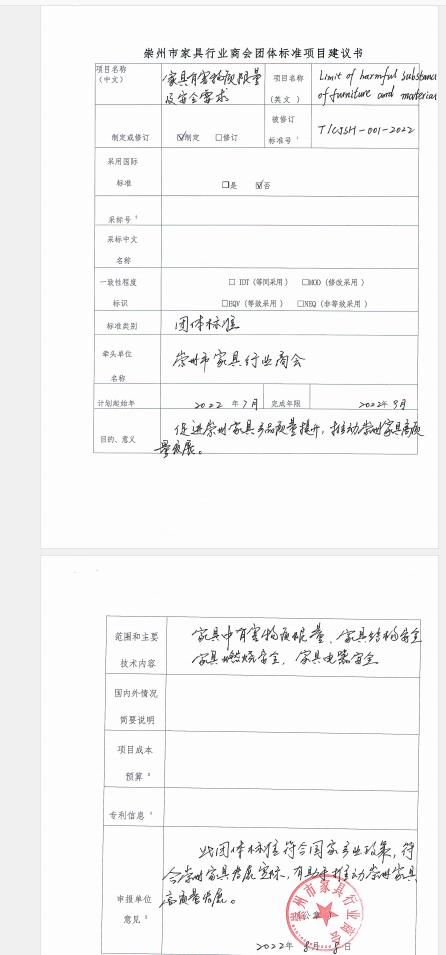 崇州市家具行业商会团体标准项目建议书
项目名称
(中文)
家具有害物质限量
及安全要求
项目名称
(英文)
Limit of harmful substance
of furniture and material
制定或修订
☑制定 □修订
被修订
标准号
T/CJSH-001-2022
采用国际
标准
□是 ☑否
采标号
采标中文
名称
一致性程度
标识
□ IDT (等同采用) □MOD (修改采用)
□EQV (等效采用) □NEQ (非等效采用)
标准类别
团体标准
牵头单位
名称
崇州市家具行业商会
计划起始年
2022 年 7月
完成年限
2022年 9月
目的、意义
促进崇州家具产品质量提升，推动崇州家具高质
量发展。
范围和主要
技术内容
家具中有害物质限量、家具结构安全
家具燃烧安全，家具电器安全
国内外情况
简要说明
项目成本
预算
专利信息
申报单位
意见
此团体标准符合国家产业政策，符
合崇州家具发展实际，有助于推动崇州家具
高质量发展。
崇州市家具行业商会
公章
2022年 8月 8日